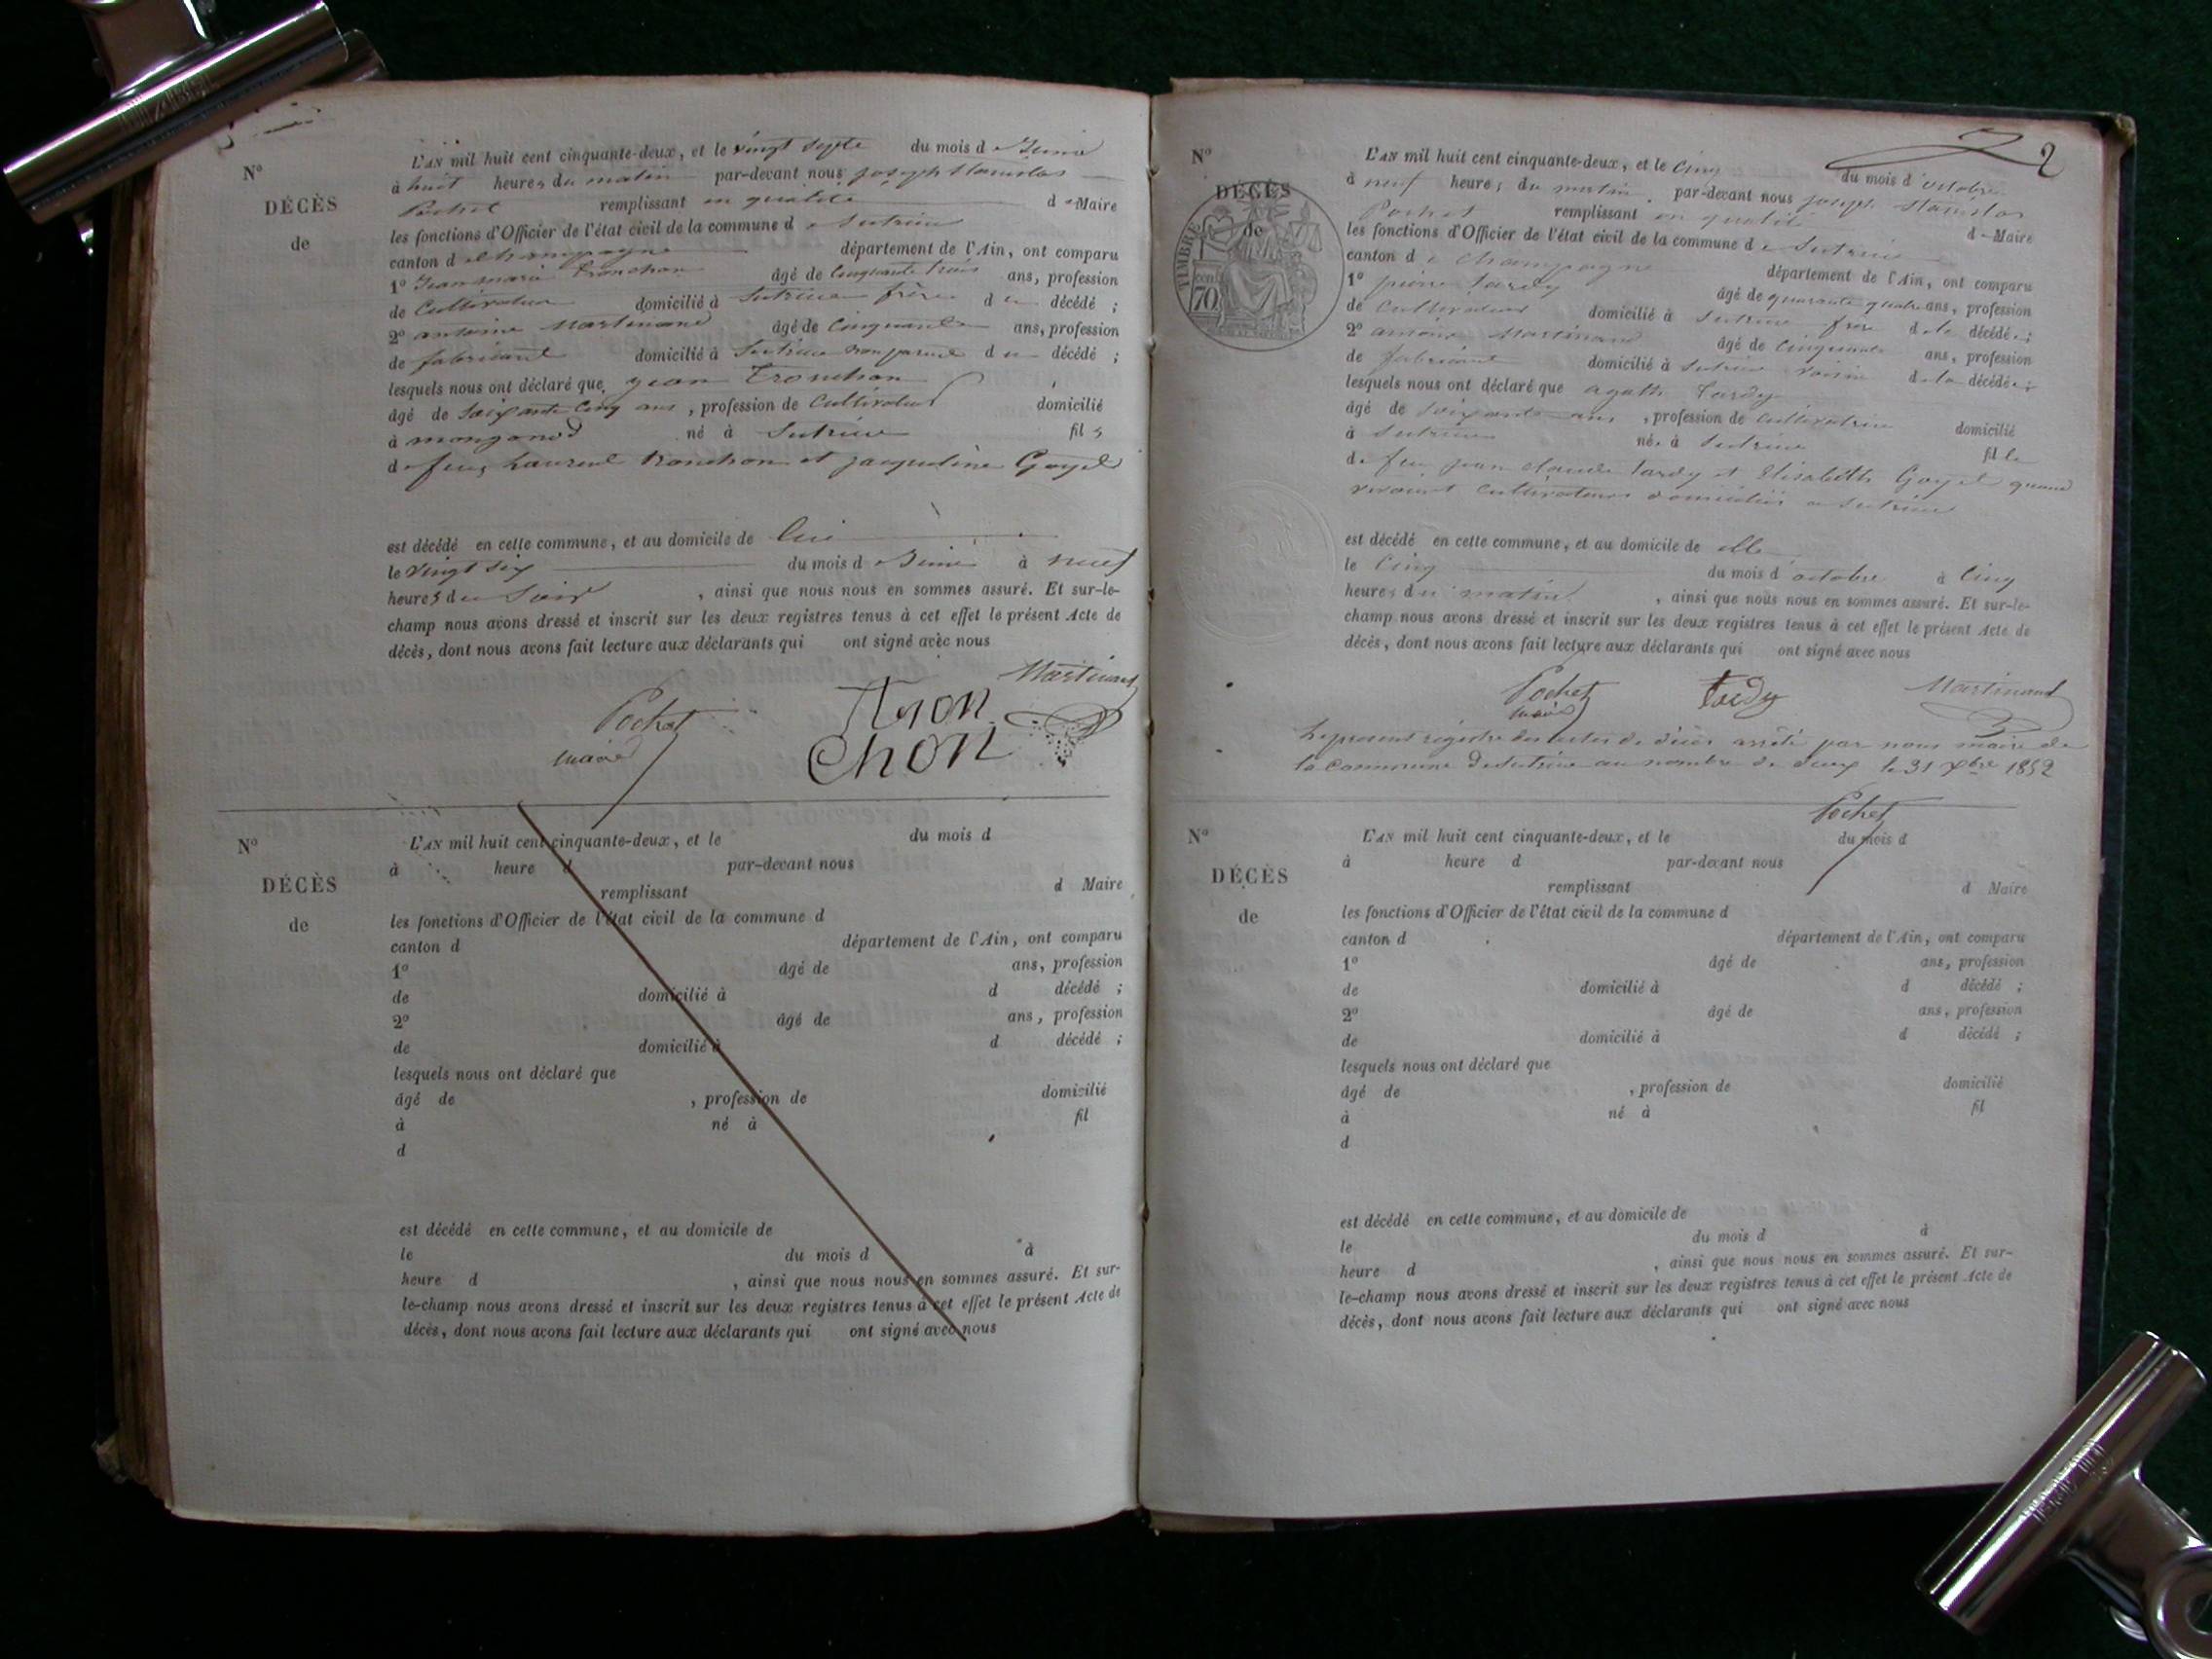 N°
DÉCÈS
de
L'AN mil huit cent cinquante-deux, et le vingt septe du mois de
à huit heures du matin par-devant nous joseph Stanislas
Pochet remplissant en qualité de Maire
les fonctions d'Officier de l'état civil de la commune de Sutrieu
canton de champagne département de l'Ain, ont comparu
1° Jean marie Tronchon âgé de Cinquante trois ans, profession
de Cultivateur domicilié à Sutrieu frère du décédé ;
2° antoine Martinand âgé de Cinquante ans, profession
de fabricant domicilié à Sutrieu non parent du décédé ;
lesquels nous ont déclaré que jean Tronchon
âgé de Soixante Cinq ans, profession de Cultivateur domicilié
à né à Sutrieu fils
de feus Laurent Tronchon et jacqueline Goyet
est décédé en cette commune, et au domicile de lui
le vingt six du mois de à neuf
heures du Soir, ainsi que nous nous en sommes assuré. Et sur-le-
champ nous avons dressé et inscrit sur les deux registres tenus à cet effet le présent Acte de
décès, dont nous avons fait lecture aux déclarants qui ont signé avec nous
Martinand
Pochet
maire
Tron
chon
N°
DÉCÈS
de
L'AN mil huit cent cinquante-deux, et le du mois d
à heure d par-devant nous
remplissant d Maire
les fonctions d'Officier de l'état civil de la commune d
canton d département de l'Ain, ont comparu
1° âgé de ans, profession
de domicilié à d décédé ;
2° âgé de ans, profession
de domicilié à d décédé ;
lesquels nous ont déclaré que
âgé de , profession de domicilié
à né à fil
d
est décédé en cette commune, et au domicile de
le du mois d à
heure d , ainsi que nous nous en sommes assuré. Et sur-
le-champ nous avons dressé et inscrit sur les deux registres tenus à cet effet le présent Acte de
décès, dont nous avons fait lecture aux déclarants qui ont signé avec nous
2
N°
DÉCÈS
de
TIMBRE
70
L'AN mil huit cent cinquante-deux, et le Cinq du mois d'octobre
à neuf heures du matin par-devant nous joseph Stanislas
Pochet remplissant en qualité de Maire
les fonctions d'Officier de l'état civil de la commune de Sutrieu
canton de Champagne département de l'Ain, ont comparu
1° pierre tardy âgé de quarante quatre ans, profession
de Cultivateur domicilié à Sutrieu frère de la décédée ;
2° antoine Martinand âgé de Cinquante ans, profession
de fabricant domicilié à Sutrieu voisin de la décédée ;
lesquels nous ont déclaré que agathe Tardy
âgé de Soixante ans, profession de Cultivatrice domicilié
à Sutrieu née à Sutrieu fille
de feu jean claude tardy et Elisabeth Goyet quand
vivaient Cultivateurs domiciliés a Sutrieu
est décédé en cette commune, et au domicile de elle
le Cinq du mois d'octobre à Cinq
heures du matin, ainsi que nous nous en sommes assuré. Et sur-le-
champ nous avons dressé et inscrit sur les deux registres tenus à cet effet le présent Acte de
décès, dont nous avons fait lecture aux déclarants qui ont signé avec nous
Pochet Tardy Martinand
maire
Le présent régistre des actes de décès arrêté par nous maire de
la Commune de Sutrieu au nombre de deux le 31 Xbre 1852
Pochet
N°
DÉCÈS
de
L'AN mil huit cent cinquante-deux, et le du mois d
à heure d par-devant nous
remplissant d Maire
les fonctions d'Officier de l'état civil de la commune d
canton d département de l'Ain, ont comparu
1° âgé de ans, profession
de domicilié à d décédé ;
2° âgé de ans, profession
de domicilié à d décédé ;
lesquels nous ont déclaré que
âgé de , profession de domicilié
à né à fil
d
est décédé en cette commune, et au domicile de
le du mois d à
heure d , ainsi que nous nous en sommes assuré. Et sur-
le-champ nous avons dressé et inscrit sur les deux registres tenus à cet effet le présent Acte de
décès, dont nous avons fait lecture aux déclarants qui ont signé avec nous